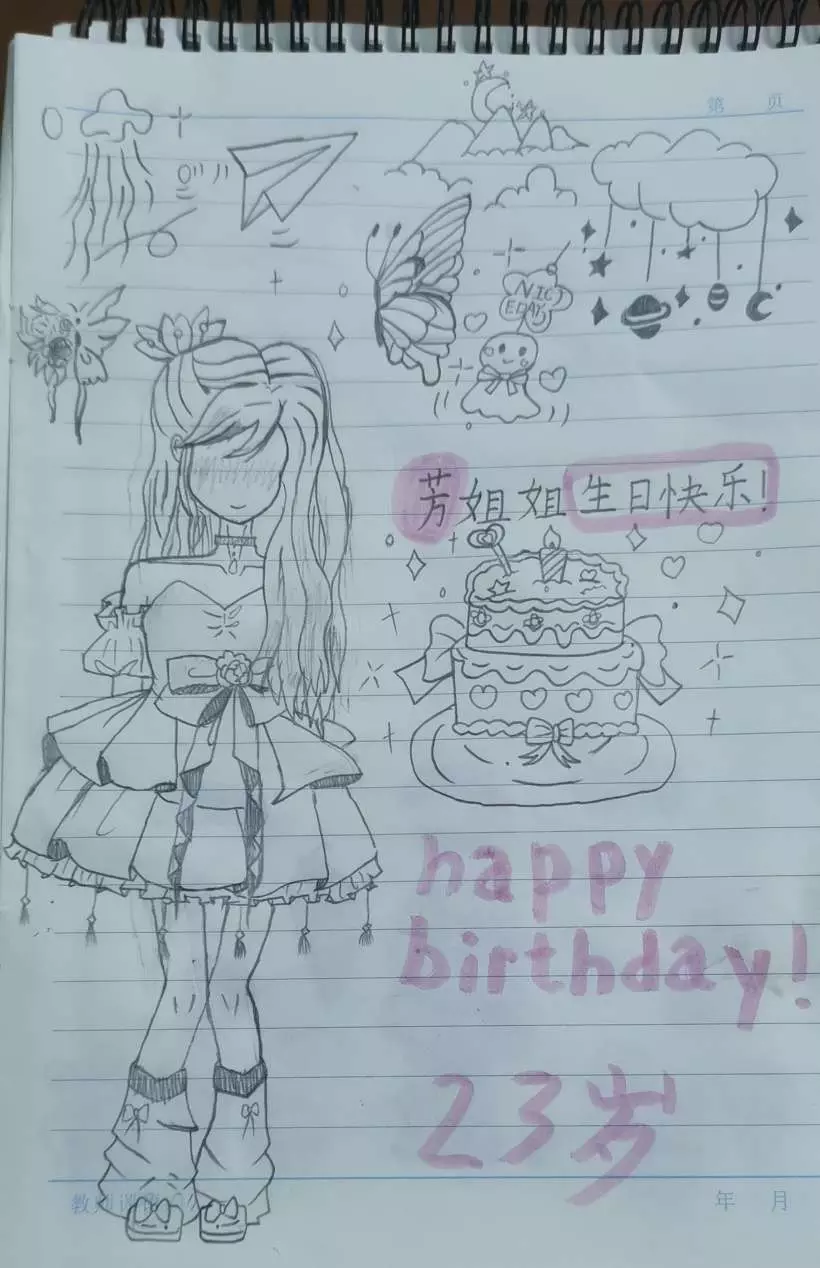 第 页
NIC
EDAY
芳姐姐生日快乐!
happy
birthday!
23岁
年 月